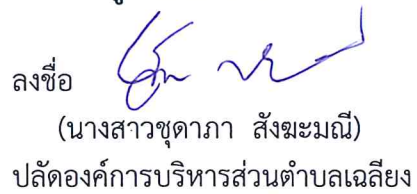 ลงชื่อ
(นางสาวชุดาภา สังฆะมณี)
ปลัดองค์การบริหารส่วนตำบลเฉลียง